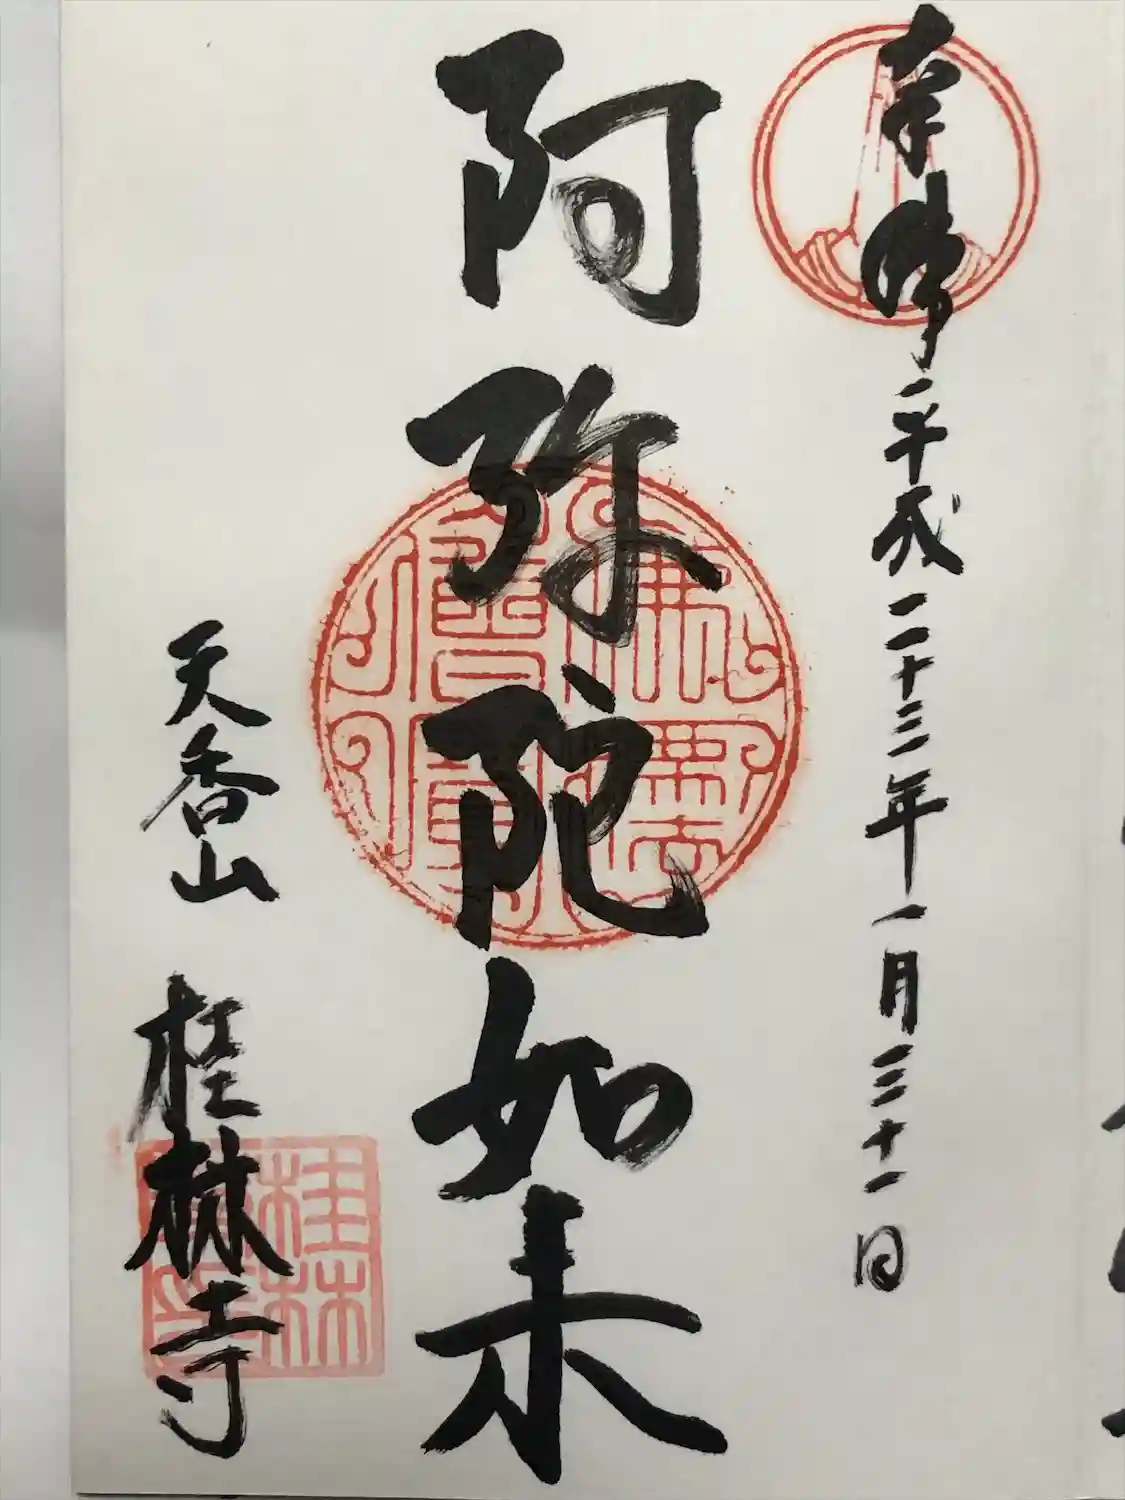 奉拝 平成二十三年一月三十一日
阿弥陀如来
天香山 桂林寺
桂林